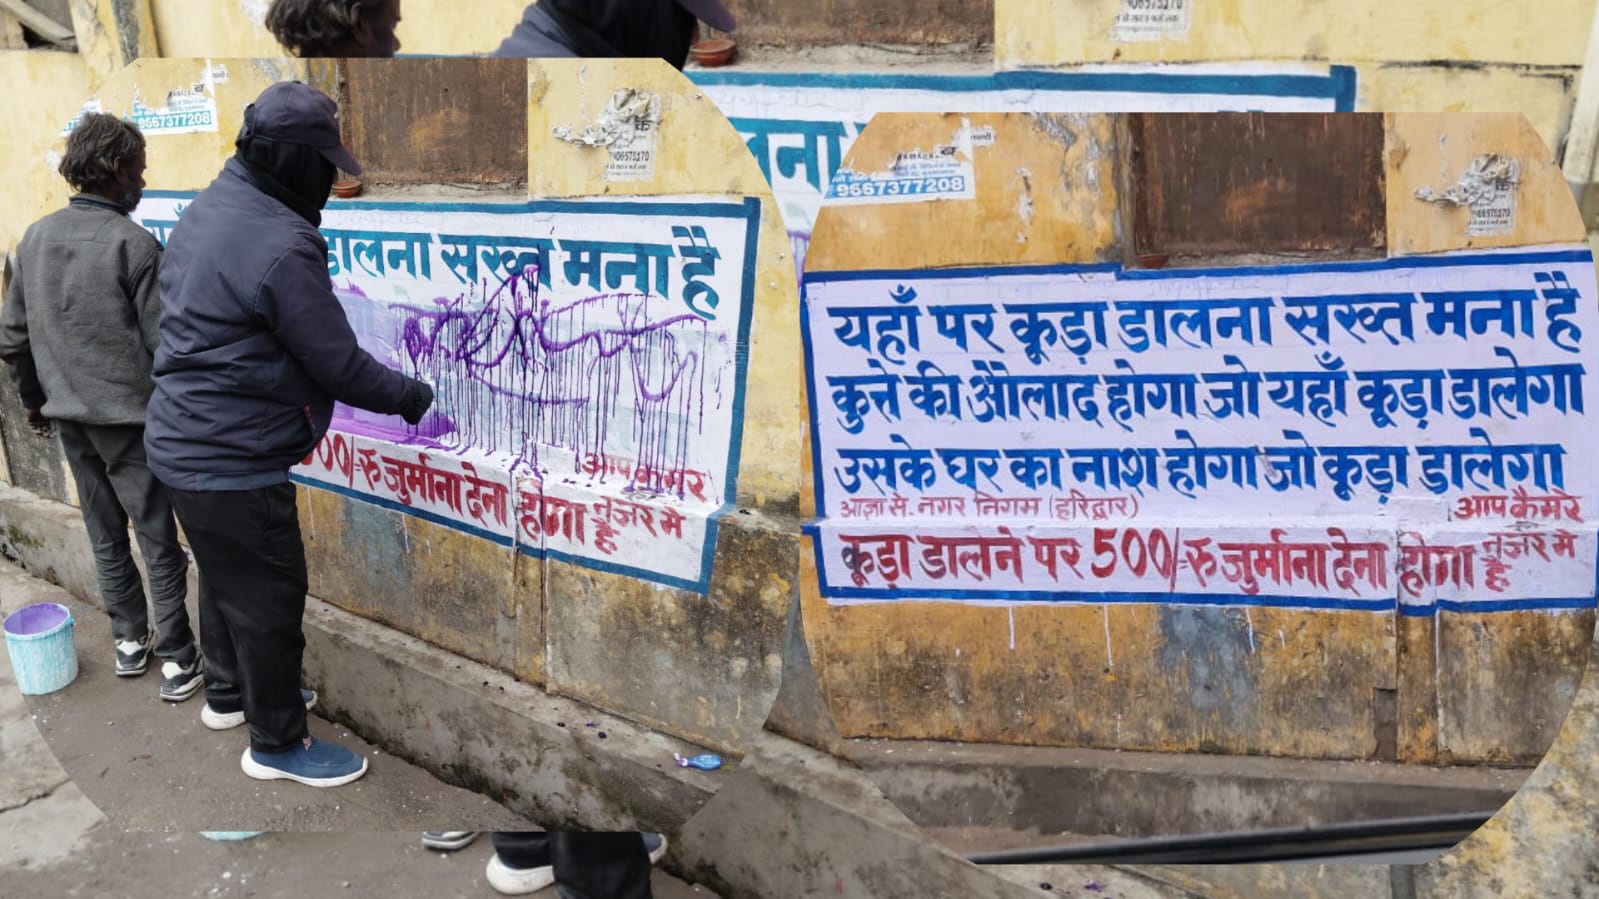 9667377208
डालना सख्त मना है
00/=रु जुर्माना देना होगा
आप कैमरे
नज़र में
है
लना
9667377208
06575170
यहाँ पर कूड़ा डालना सख्त मना है
कुत्ते की औेलाद होगा जो यहाँ कूड़ा डालेगा
उसके घर का नाश होगा जो कूड़ा डालेगा
आज्ञा से. नगर निगम (हरिद्वार)
आप कैमरे
कूड़ा डालने पर 500/=रु जुर्माना देना होगा
नज़र में
है